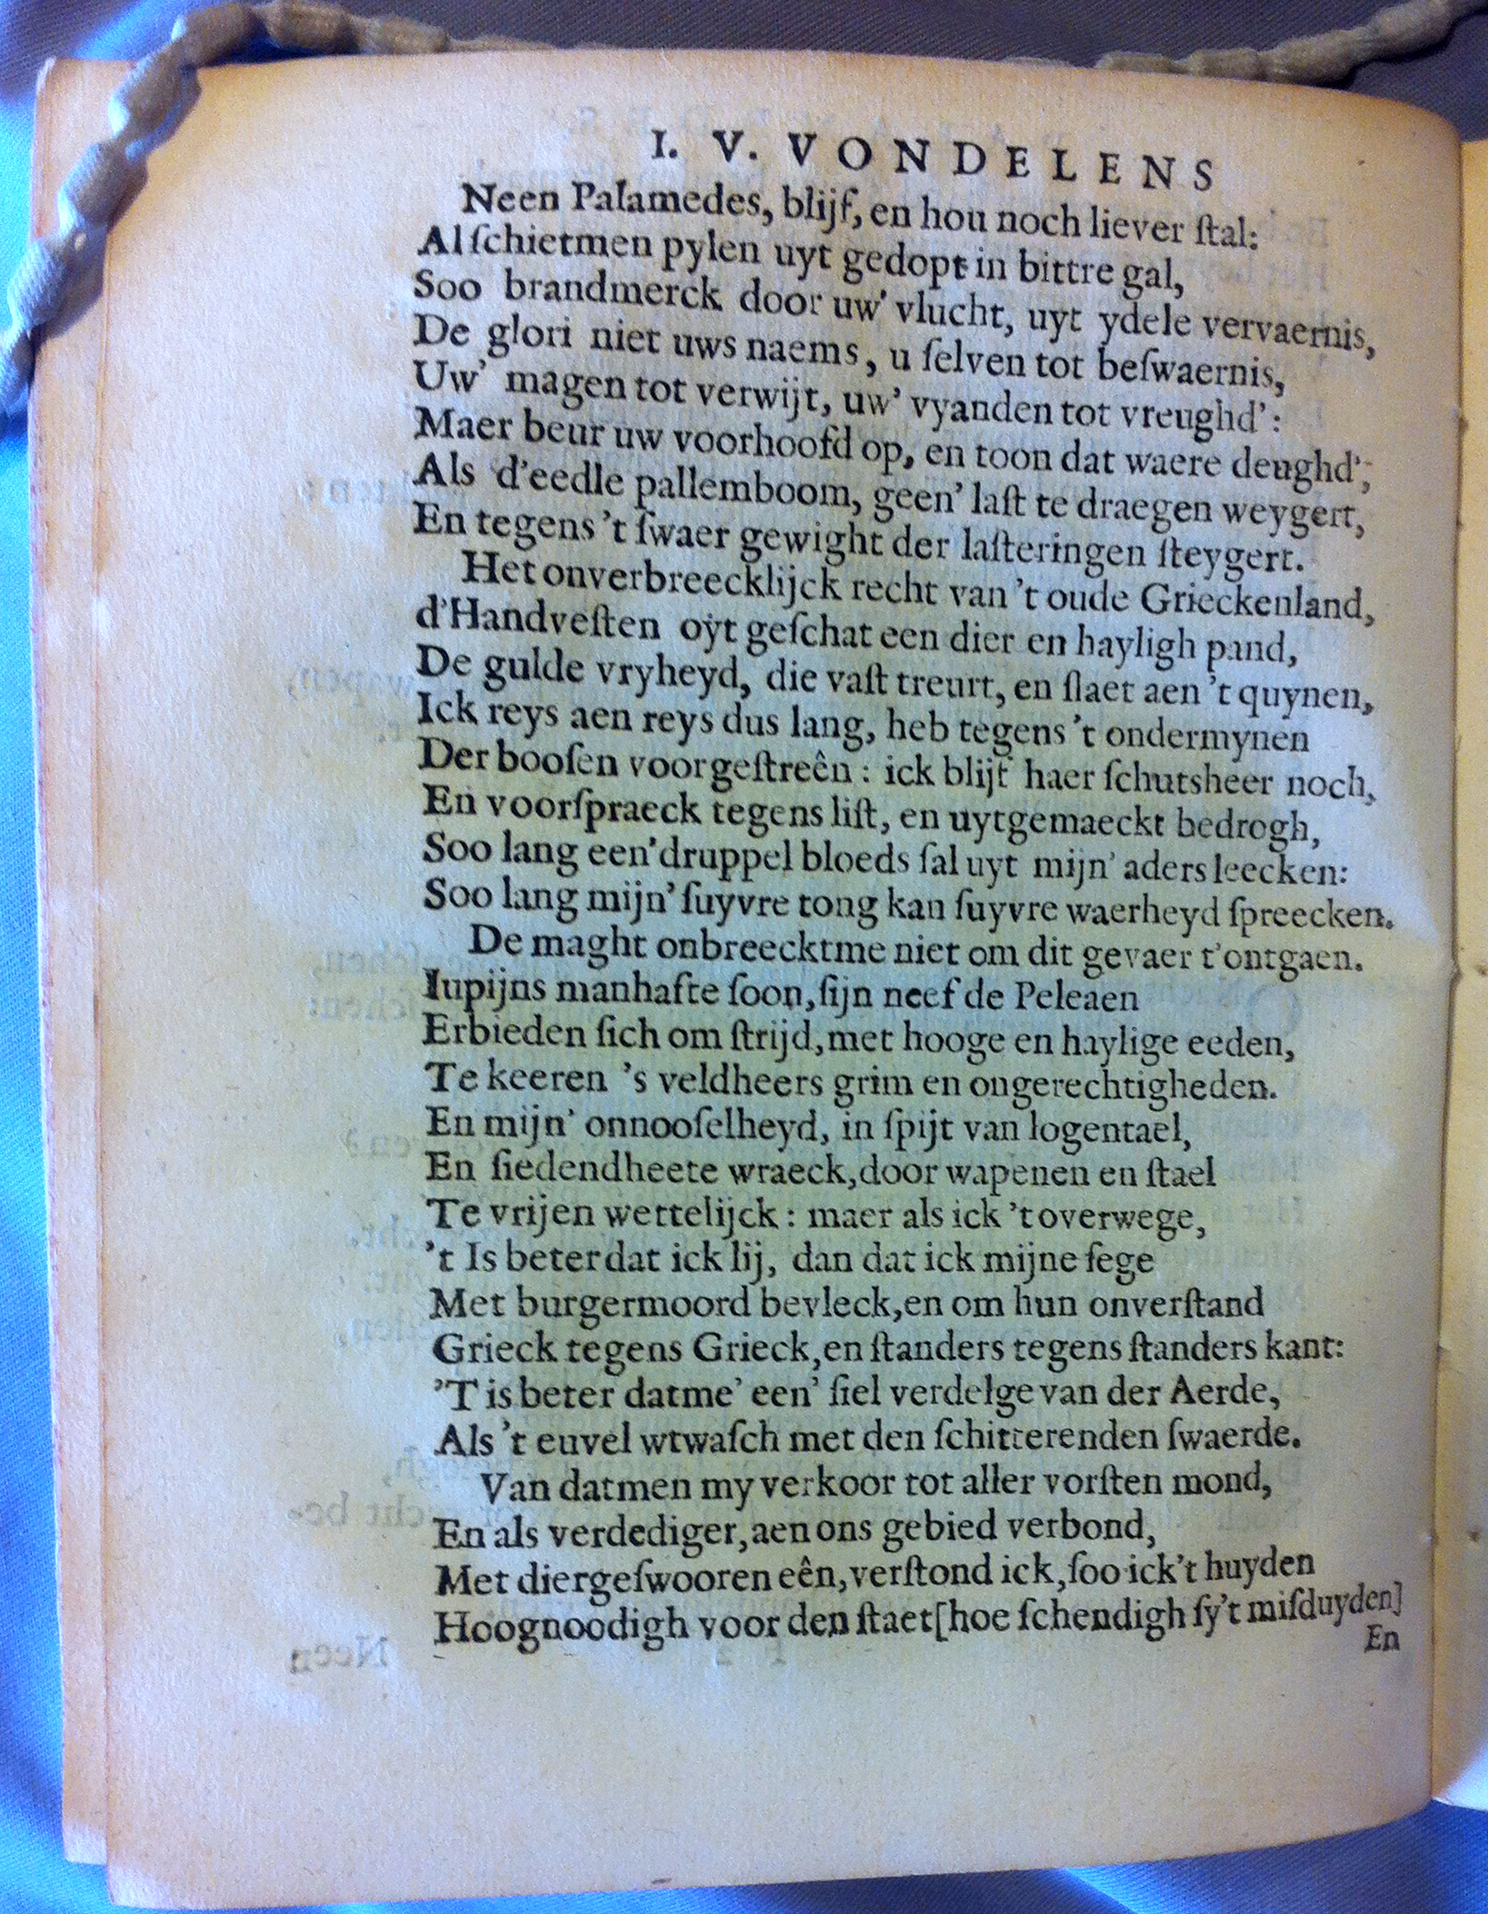 I. V. VONDELENS
Neen Palamedes, blijf, en hou noch liever ſtal:
Al ſchietmen pylen uyt gedopt in bittre gal,
Soo brandmerck door uw' vlucht, uyt ydele vervaernis,
De glori niet uws naems, u ſelven tot beſwaernis,
Uw' magen tot verwijt, uw' vyanden tot vreughd':
Maer beur uw voorhoofd op, en toon dat waere deughd',
Als d'eedle pallemboom, geen' laſt te draegen weygert,
En tegens 't ſwaer gewight der laſteringen ſteygert.
Het onverbreecklijck recht van 't oude Grieckenland,
d'Handveſten oyt geſchat een dier en hayligh pand,
De gulde vryheyd, die vaſt treurt, en ſlaet aen 't quynen,
Ick reys aen reys dus lang, heb tegens 't ondermynen
Der booſen voorgeſtreên: ick blijf haer ſchutsheer noch,
En voorſpraeck tegens liſt, en uytgemaeckt bedrogh,
Soo lang een' druppel bloeds ſal uyt mijn' aders leecken:
Soo lang mijn' ſuyvre tong kan ſuyvre waerheyd ſpreecken.
De maght onbreecktme niet om dit gevaer t'ontgaen.
Iupijns manhafte ſoon, ſijn neef de Peleaen
Erbieden ſich om ſtrijd, met hooge en haylige eeden,
Te keeren 's veldheers grim en ongerechtigheden.
En mijn' onnooſelheyd, in ſpijt van logentael,
En ſiedendheete wraeck, door wapenen en ſtael
Te vrijen wettelijck: maer als ick 't overwege,
't Is beter dat ick lij, dan dat ick mijne ſege
Met burgermoord bevleck, en om hun onverſtand
Grieck tegens Grieck, en ſtanders tegens ſtanders kant:
'T is beter datme' een' ſiel verdelge van der Aerde,
Als 't euvel wtwaſch met den ſchitterenden ſwaerde.
Van datmen my verkoor tot aller vorſten mond,
En als verdediger, aen ons gebied verbond,
Met diergeſwooren eên, verſtond ick, ſoo ick 't huyden
Hoognoodigh voor den ſtaet [hoe ſchendigh ſy't miſduyden]
En